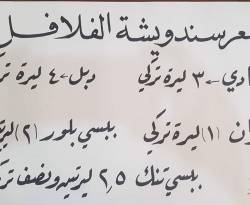 سعر سندويشة الفلافل
ادي ← ٣ ليرة تركي دبل ← ٤ ليرة تر
ان (١) ليرة تركي ببسي بلور (٢) ليرت
ببسي تنك ٢,٥ ليرتين ونصف تر